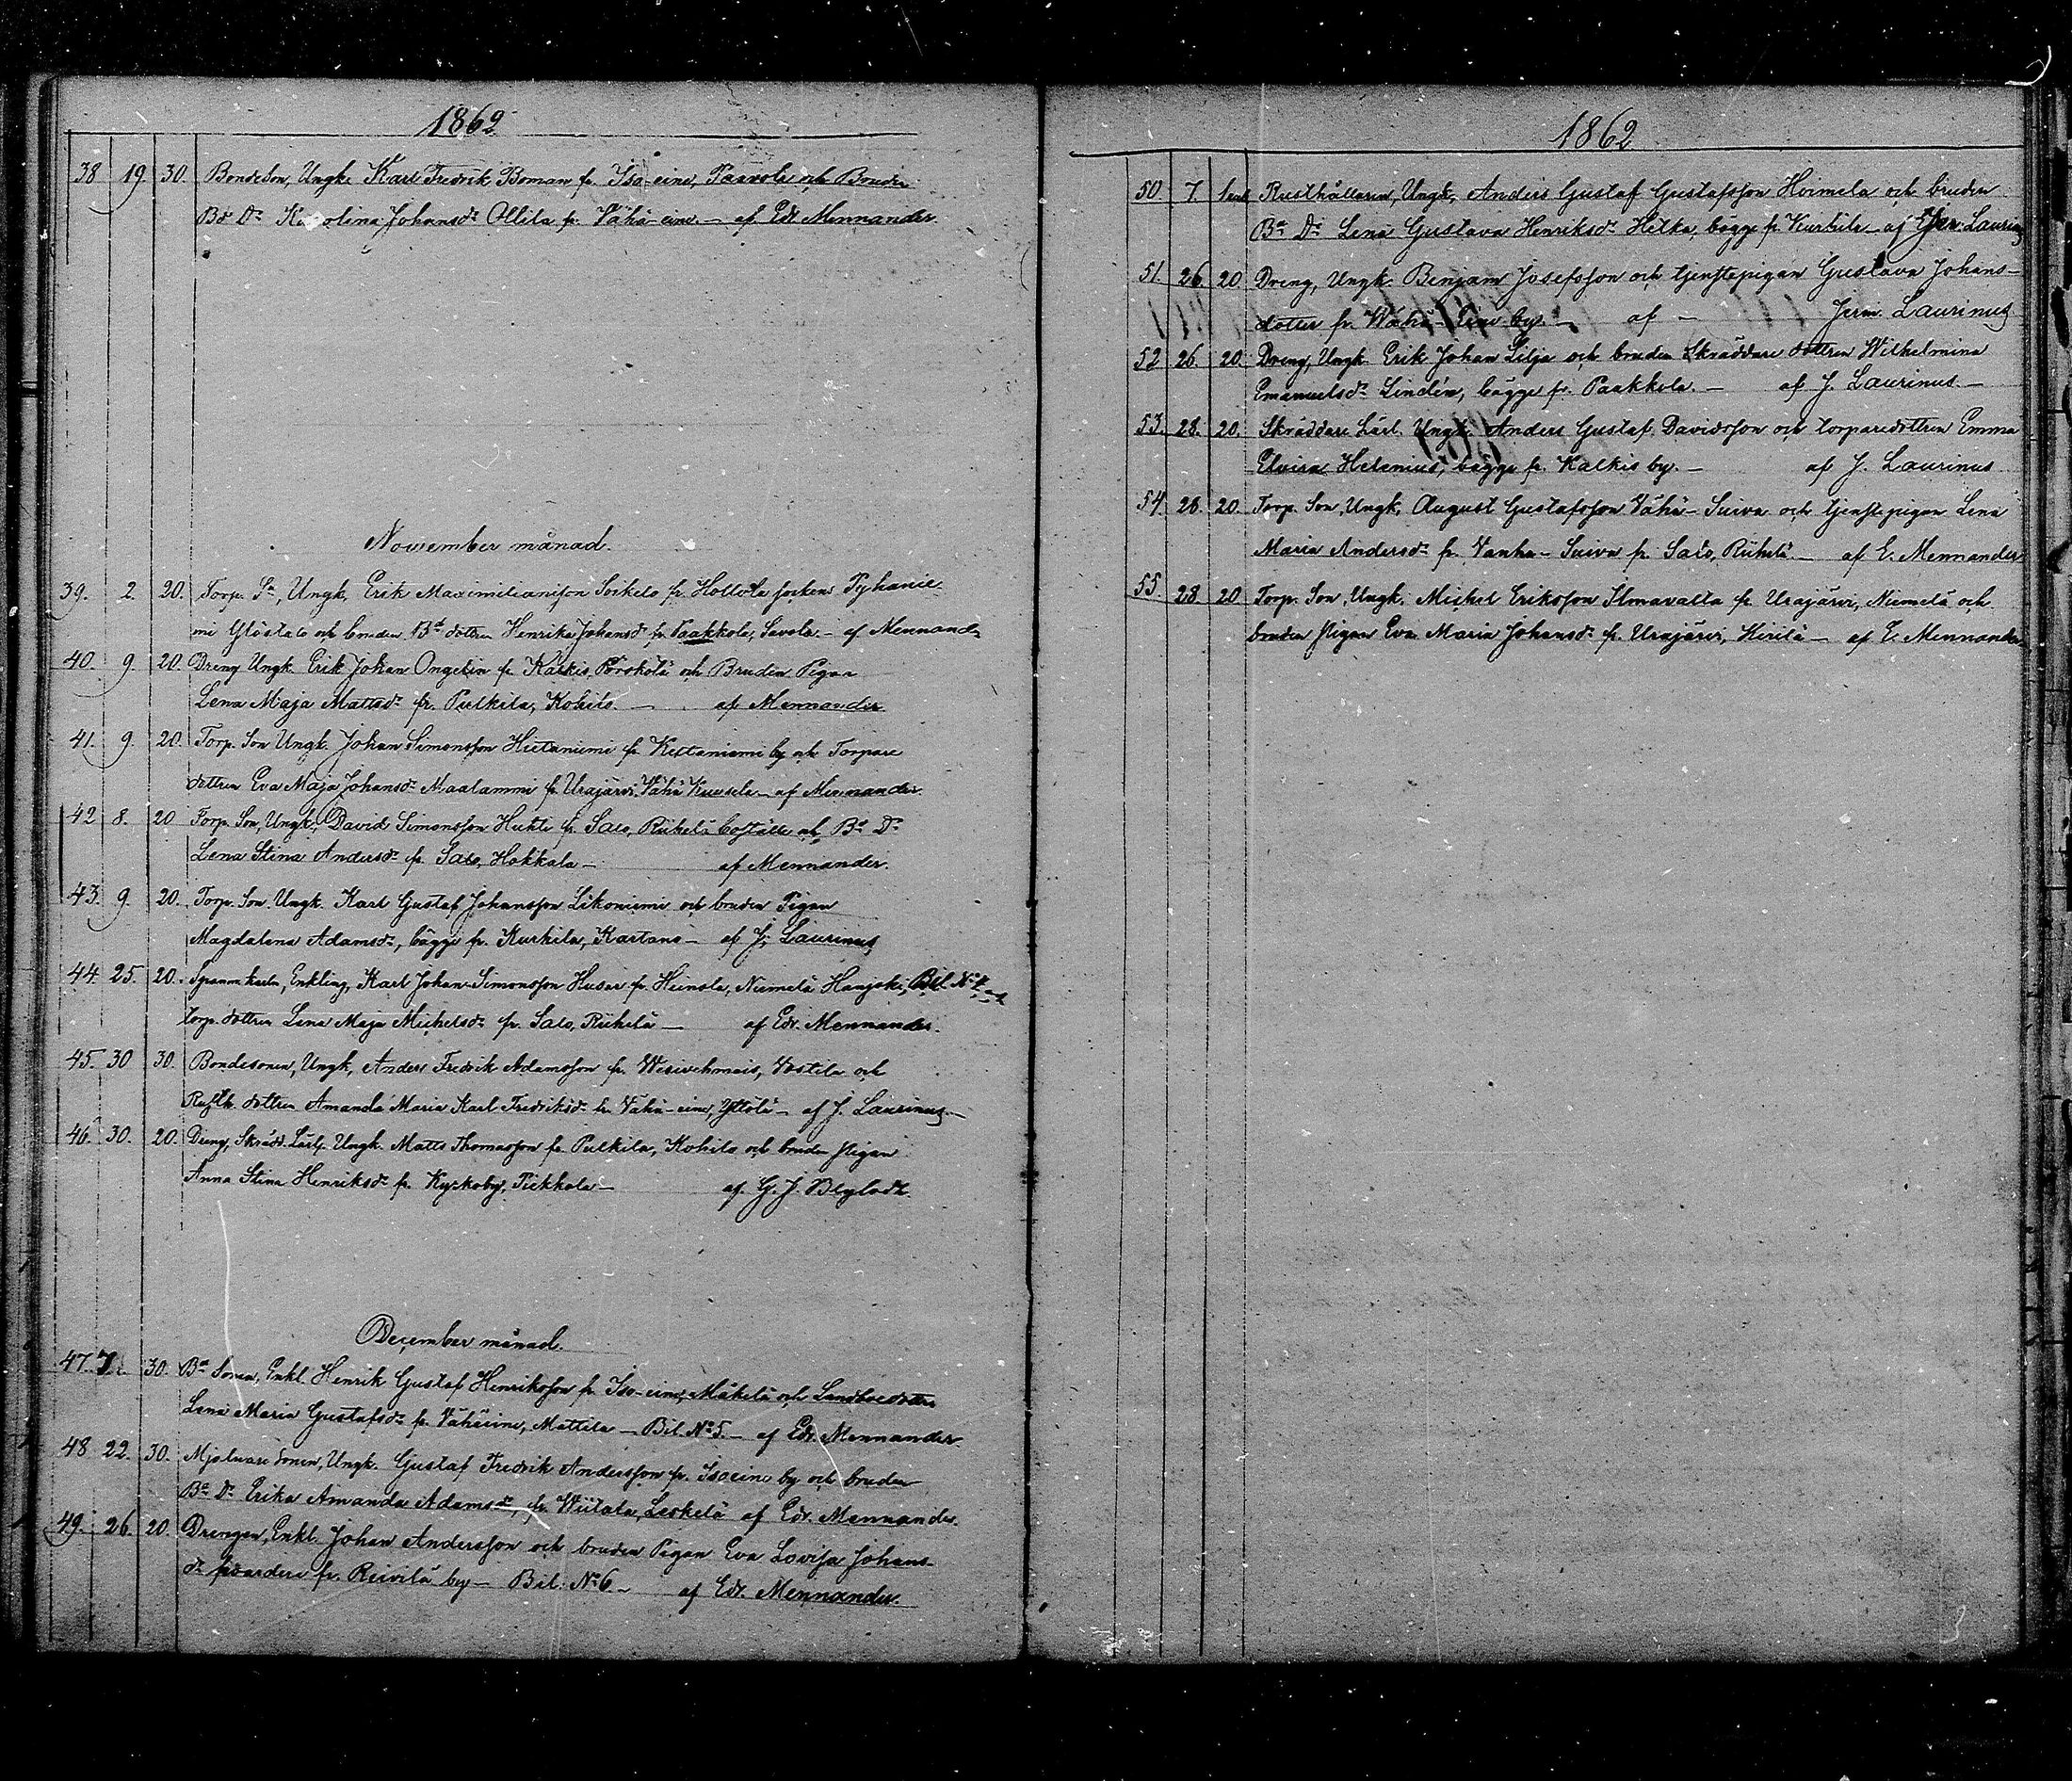 1862
38 19. 30. Bondeson, Ungk. Karl Fredrik Boman fr. Iso-eino, Paavola och Bruden
Bd Dr Karolina Johansdr Ollila fr. Vähä-eino. – af Edv. Mennander
November månad.
39. 2. 20. Torp. Sn, Ungk. Erik Maximiliansson Soikelo fr. Hollola socken Pyhänie-
mi Ylöstalo och bruden Bd dottren Henrika Johansdr fr. Paakkola, Savola. – af Mennander
40. 9. 20. Dreng Ungk. Erik Johan Ongelin fr. Kalkis, Pörskölä och Bruden Pigan
Lena Maja Mattsdr fr. Pulkila, Kohilo. – af Mennander
41. 9. 20. Torp. Son Ungk. Johan Simonsson Hietaniemi fr. Keltaniemi by och Torpare
dottren Eva Maja Johansdr Maalammi fr. Urajärvi, Vähä Kuusela – af Mennander.
42 8. 20 Torp. Son, Ungk. David Simonsson Huhti fr. Salo, Riihelä boställe och Bd Dr
Lena Stina Andersdr fr. Salo, Hokkala – af Mennander.
43. 9. 20. Torp. Son. Ungk. Karl Gustaf Johansson Likoniemi och bruden Pigan
Magdalena Adamsdr, bägge fr. Kurkila, Kartano – af J. Laurinus
44. 25. 20. Spannkarln, Enkling, Karl Johan Simonsson Husar fr. Heinola, Niemelä Hanjoki, Bil. No 4 och
torp. dottren Lena Maja Michelsdr fr. Salo, Riihelä – af Edv. Mennander.
45. 30 30. Bondesonen, Ungk, Anders Fredrik Adamsson fr. Wesivehmais, Vostila och
Rusth. dottren Amanda Maria Karl Fredriksdr fr. Vähä-eino, Yttölä – af J. Laurinus. –
46. 30. 20. Dreng, Skrädd. Lärl. Ungk. Matts Thomasson fr. Pulkila, Kohilo och bruden pigan
Anna Stina Henriksdr fr. Kyrkoby, Piekkola – af G. J. Blylodt.
December månad.
47. 7. 30. Bd Sonen, Enkl. Henrik Gustaf Henriksson fr. Iso-eino, Mäkelä och Landboedottren
Lena Maria Gustafsdr fr. Vähäeino, Mattila – Bil. No 5. – af Edv. Mennander.
48 22. 30. Mjölnare Sonen, Ungk. Gustaf Fredrik Andersson fr. Isoeino by och bruden
Bd Dr Erika Amanda Adamsdr, fr. Wiitala, Leskelä af Edv. Mennander.
49. 26. 20. Drengen, Enkl. Johan Andersson och bruden Pigan Eva Lovisa Johans-
dr fr. Reivilä by – Bil. No 6. – af Edv. Mennander.
1862
50 7. Rusthållaren, Ungk, Anders Gustaf Gustafsson Hoimela och bruden
Bd Dr Lena Gustava Henriksdr Helka, bägge fr. Kurkila – af Jer. Laurinus
51. 26. 20 Dreng, Ungk. Benjam Josefsson och tjenstepigan Gustava Johans-
dotter fr. Wähä-Eino by. – af – Jerm. Laurinus
52 26. 20. Dreng, Ungk. Erik Johan Lilja och bruden Skräddare dottren Wilhelmina
Emanuelsdr Lindén, bägge fr. Paakkola. – af J. Laurinus –
53. 28. 20. Skräddare Lärl. Ungk. Anders Gustaf Davidsson och torparedottren Emma
Elvira Helenius, bägge fr. Kalkis by. – af J. Laurinus
54. 28. 20. Torp. Son, Ungk, August Gustafsson Vähä-Suiva och tjenstepigan Lena
Maria Andersdr fr. Vanha-Suiva fr. Salo, Riihelä – af E. Mennander
55. 28. 20 Torp. Son, Ungk. Michel Eriksson Ilmavalta fr. Urajärvi, Niemelä och
bruden pigan Eva Maria Johansdr fr. Urajärvi, Kirilä – af E. Mennander